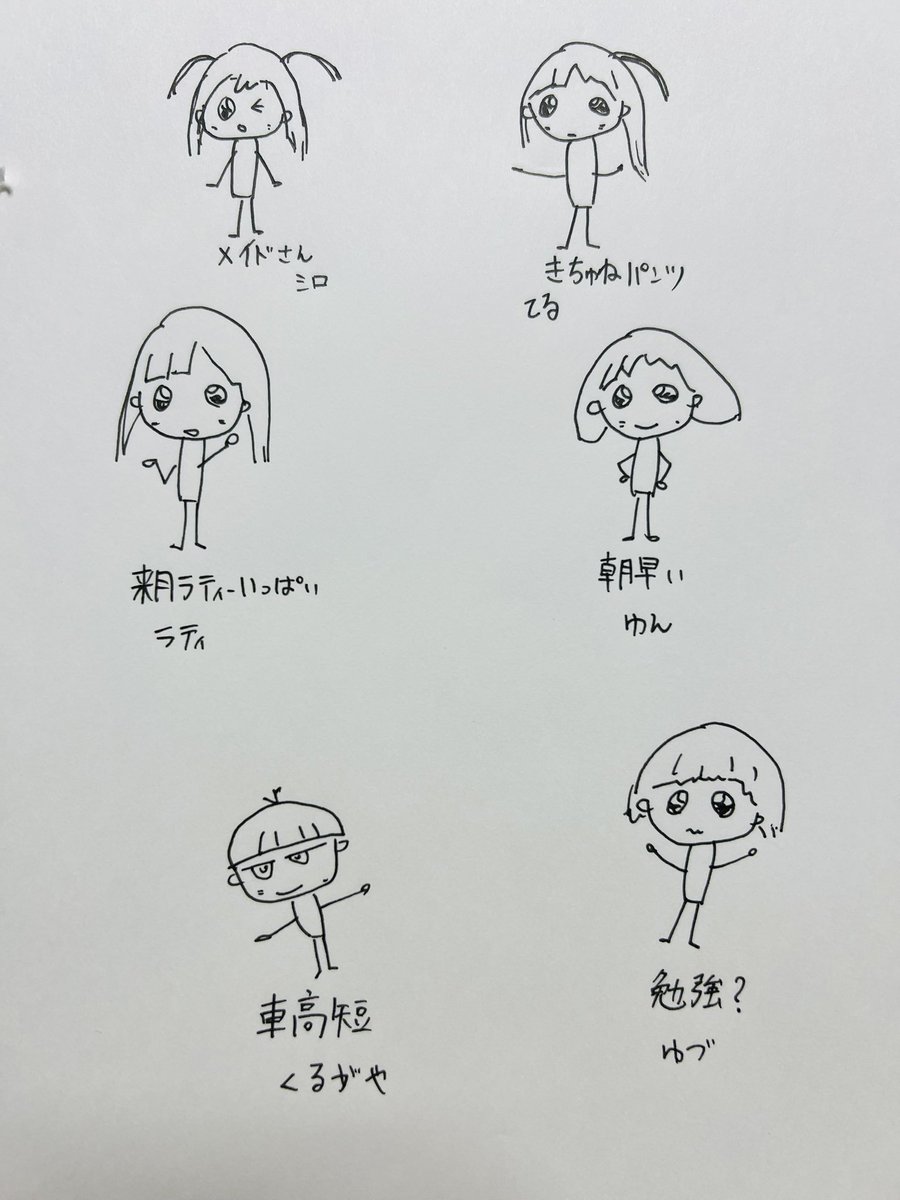 メイドさん
ミロ
きちゅねパンツ
てる
来月ラティーいっぱい
ラティ
朝早い
ゆん
車高短
くるがや
勉強?
ゆづ